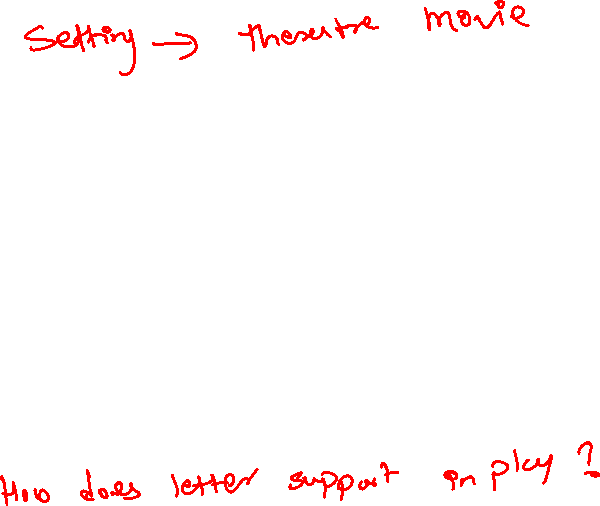 Setting → theatre movie
How does letter support in play ?